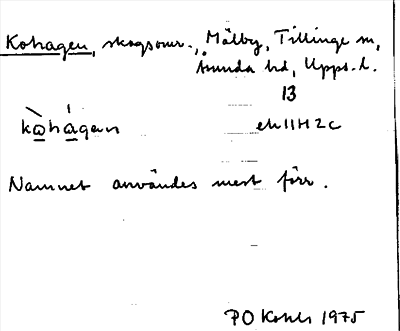 Kohagen, skogsomr., Mälby, Tillinge sn,
Åsunda hd, Upps. l.
13
kòhágan
ek 11H2c
Namnet användes mest förr.
PO Kohls 1975